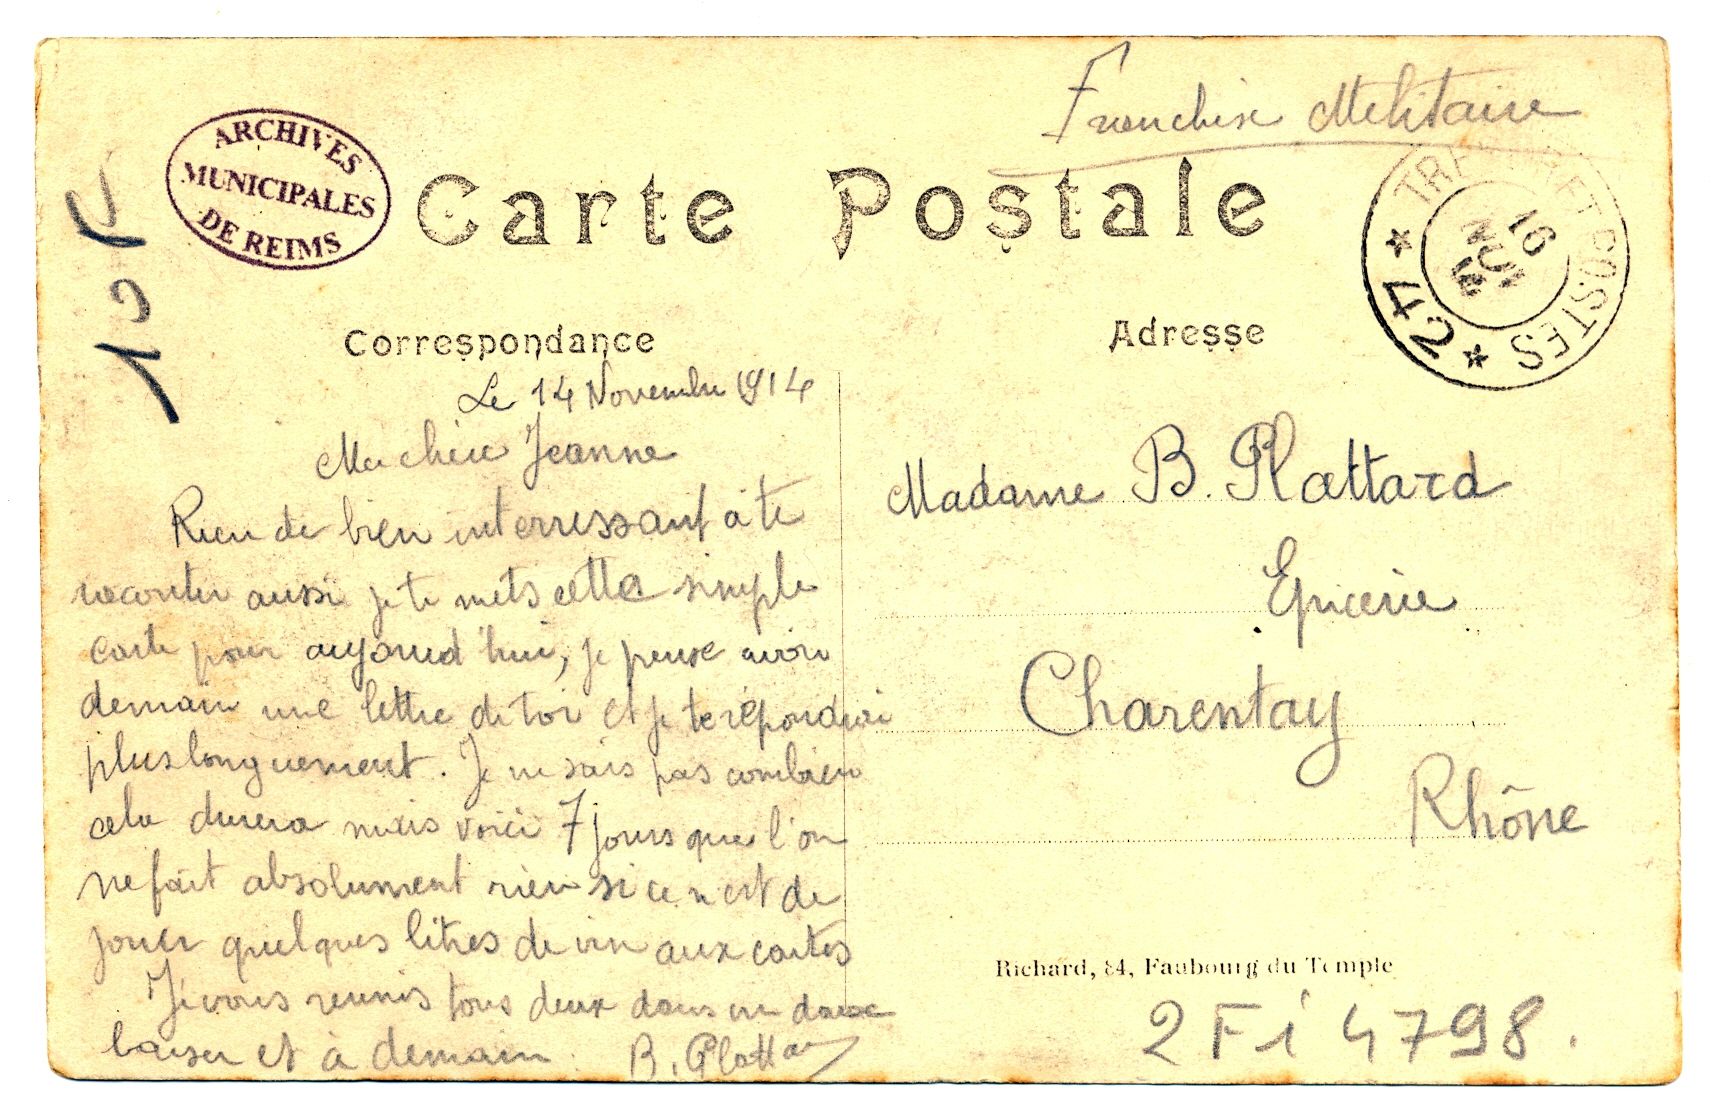 Franchise Militaire
ARCHIVES
MUNICIPALES
DE REIMS
Carte Postale
TRESOR ET POSTES
16
NOV
14
* 42 *
Correspondance
Adresse
Le 14 Novembre 1914
Ma chère Jeanne
Rien de bien interressant à te
raconter aussi je te mets cette simple
carte pour aujourd'hui, je pense avoir
demain une lettre de toi et je te répondrai
plus longuement. Je ne sais pas combien
cela durera mais voici 7 jours que l'on
ne fait absolument rien si ce n'est de
jouer quelques litres de vin aux cartes
Je vous reunis tous deux dans un doux
baiser et à demain. B. Plattard
Madame B. Plattard
Epicerie
Charentay
Rhône
Richard, 84, Faubourg du Temple
2 Fi 4798.